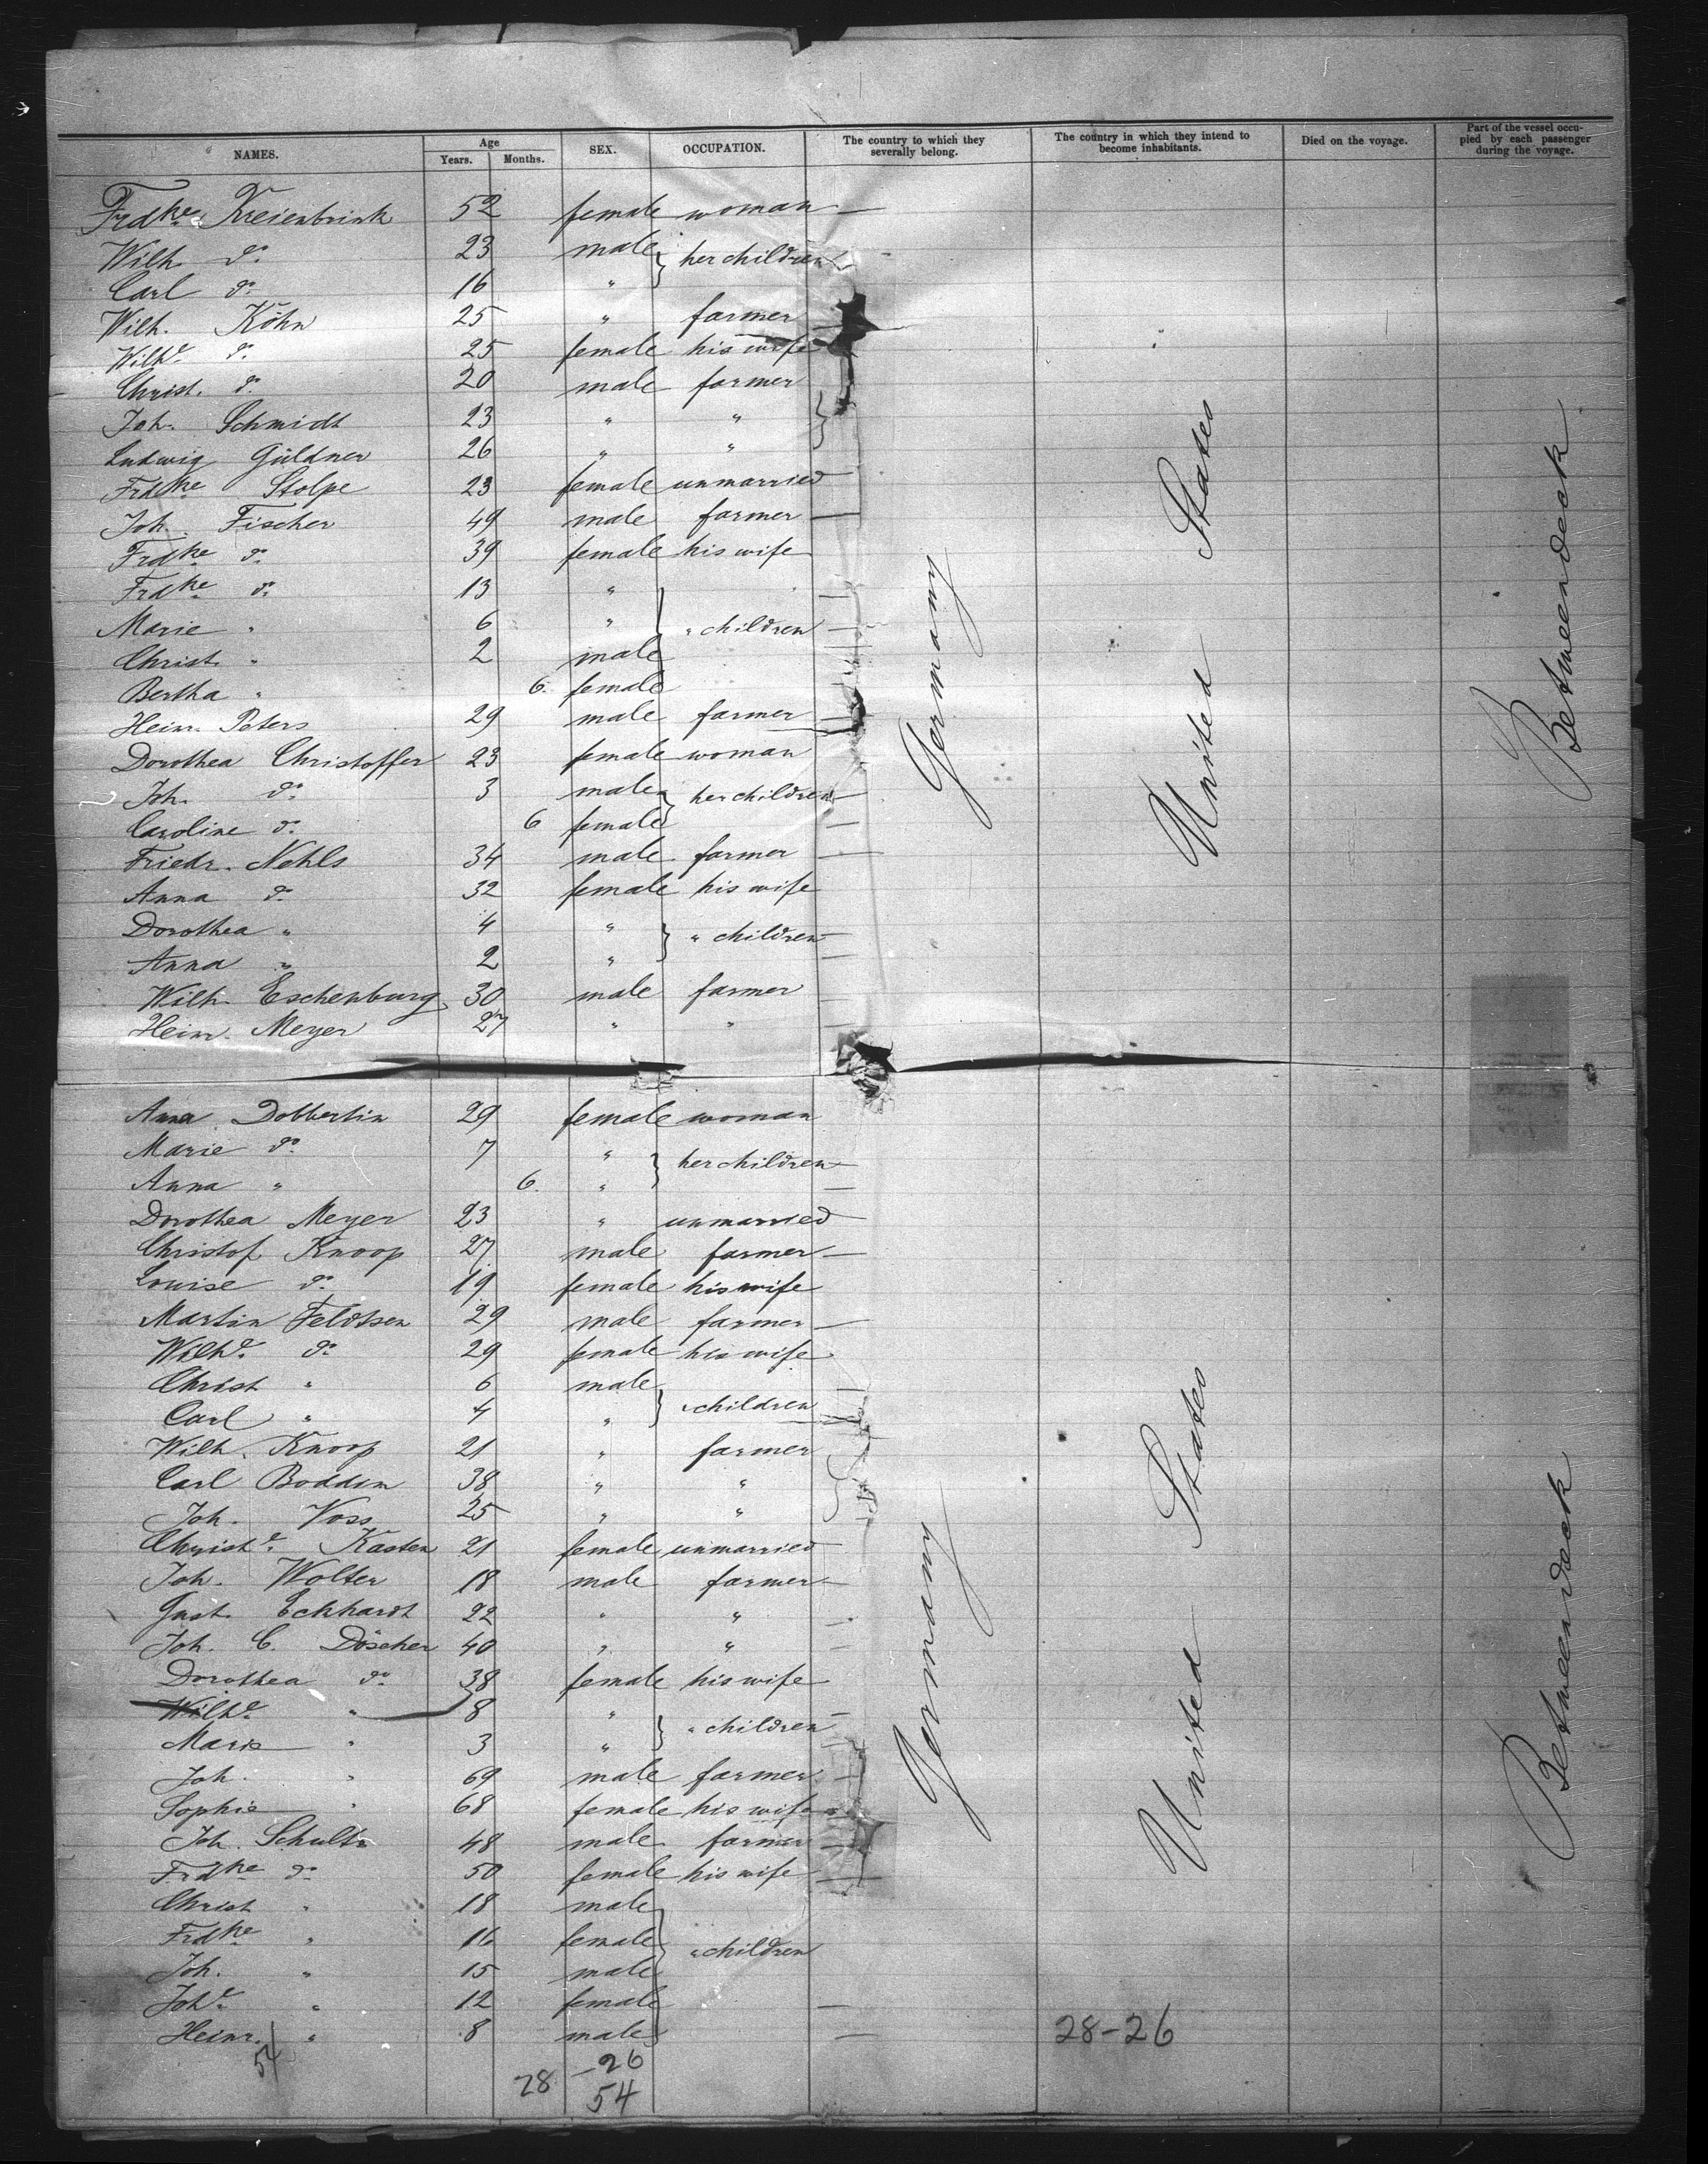 NAMES. Age Years. Months. SEX. OCCUPATION. The country to which they severally belong. The country in which they intend to become inhabitants. Died on the voyage. Part of the vessel occupied by each passenger during the voyage.
Frdke Kreienbrink 52 female woman
Wilh. do 23 male } her children
Carl do 16 "
Wilh. Köhn 25 " farmer
Wilhe do 25 female his wife
Christ. do 20 male farmer
Joh. Schmidt 23 " "
Ludwig Güldner 26 " "
Frdke Stolpe 23 female unmarried
Joh. Fischer 49 male farmer
Frdke do 39 female his wife
Frdke do 13 "
Marie " 6 " } " children
Christ. " 2 male
Bertha " 6. female
Heinr. Peters 29 male farmer
Dorothea Christoffer 23 female woman
Joh. do 3 male } her children
Caroline do 6 female
Friedr. Nehls 34 male farmer
Anna do 32 female his wife
Dorothea " 4 " } " children
Anna " 2 "
Wilh. Eschenburg 30 male farmer
Heinr. Meyer 27 " "
Germany
United States
Betweendeck
Anna Dobbertin 29 female woman
Marie do 7 " } her children
Anna " 6. "
Dorothea Meyer 23 " unmarried
Christof Knoop 27 male farmer
Louise do 19 female his wife
Martin Feldtsen 29 male farmer
Wilhe do 29 female his wife
Christ " 6 male } " children
Carl " 4 "
Wilh. Knoop 21 " farmer
Carl Boddin 38 " "
Joh. Voss 25 " "
Christe Kasten 21 female unmarried
Joh. Wolter 18 male farmer
Gust. Eckhardt 22 " "
Joh. C. Döscher 40 " "
Dorothea do 38 female his wife
Wilhe " 8 " } " children
Marie " 3 "
Joh. " 69 male farmer
Sophie " 68 female his wife
Joh. Schultz 48 male farmer
Frdke do 50 female his wife
Christ " 18 male
Frdke " 16 female } " children
Joh. " 15 male
Johe " 12 female
Heinr. " 8 male
Germany
United States
Betweendeck
28-26
54
28 - 26
54